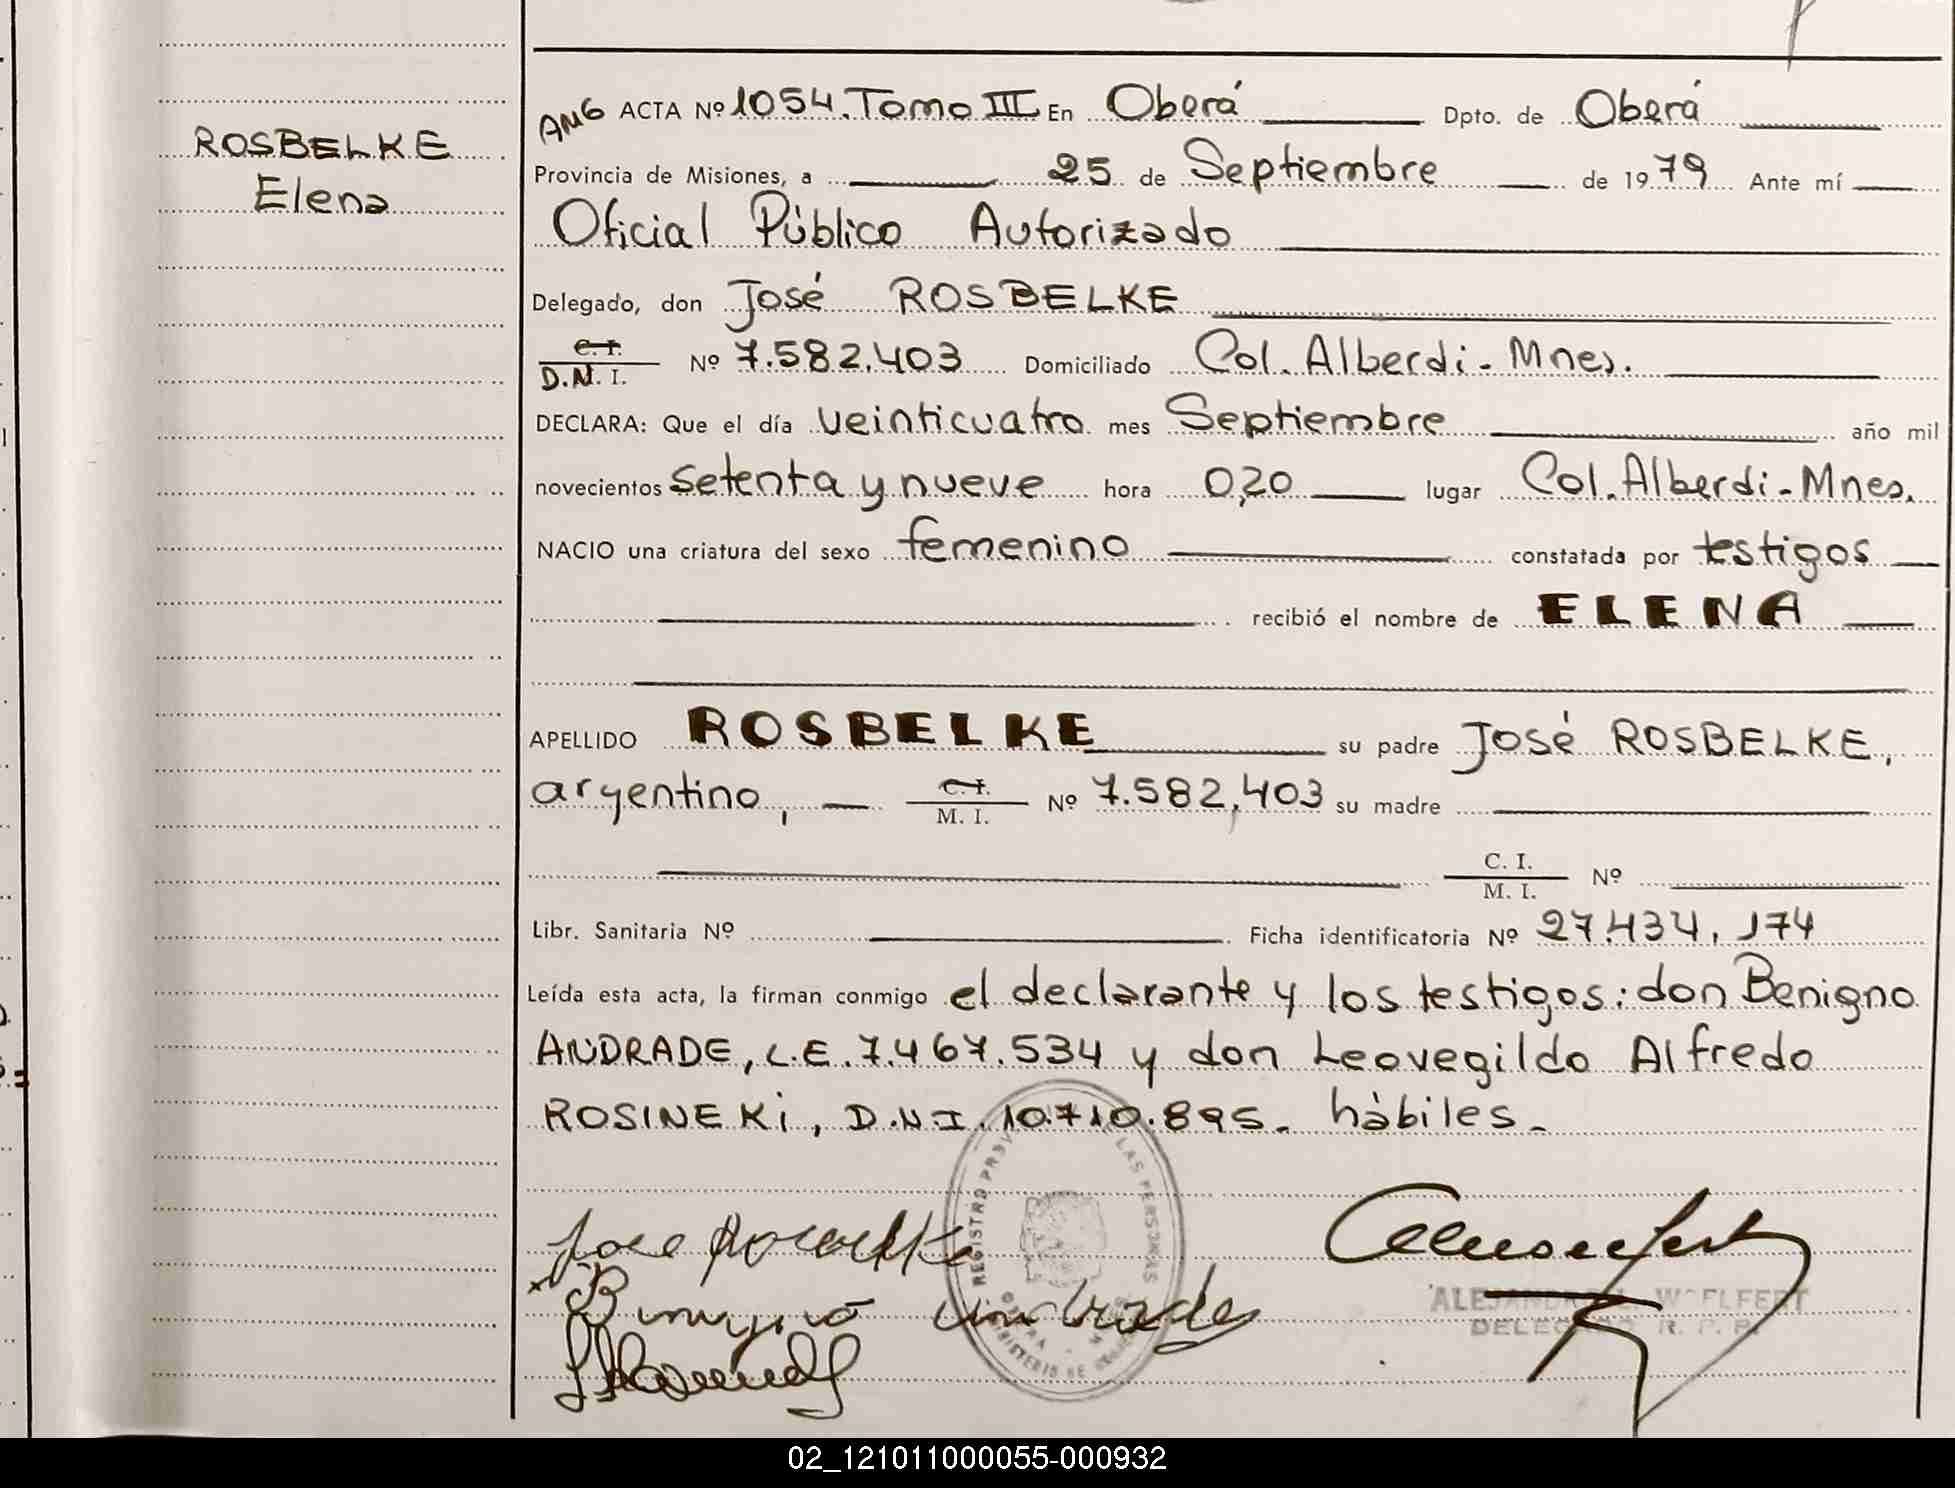 ROSBELKE
Elena
AMG ACTA Nº 1054. Tomo III En Oberá Dpto. de Oberá
Provincia de Misiones, a 25 de Septiembre de 1979 Ante mí
Oficial Público Autorizado
Delegado, don José ROSBELKE
C. I. / D.N.I. Nº 7.582.403 Domiciliado Col. Alberdi - Mnes.
DECLARA: Que el día veinticuatro mes Septiembre año mil
novecientos setenta y nueve hora 0,20 lugar Col. Alberdi - Mnes.
NACIO una criatura del sexo femenino constatada por testigos
recibió el nombre de ELENA
APELLIDO ROSBELKE su padre José ROSBELKE,
argentino, C. I. / M. I. Nº 7.582,403 su madre
C. I. / M. I. Nº
Libr. Sanitaria Nº Ficha identificatoria Nº 27.434.174
Leída esta acta, la firman conmigo el declarante y los testigos: don Benigno
ANDRADE, L.E. 7.467.534 y don Leovegildo Alfredo
ROSINEKi, D.N.I. 10.710.895. hábiles.
REGISTRO PROV LAS PERSONAS
OBERA
ALEJANDRO L. WOELFERT
DELEGADO R. P. P.
02_121011000055-000932